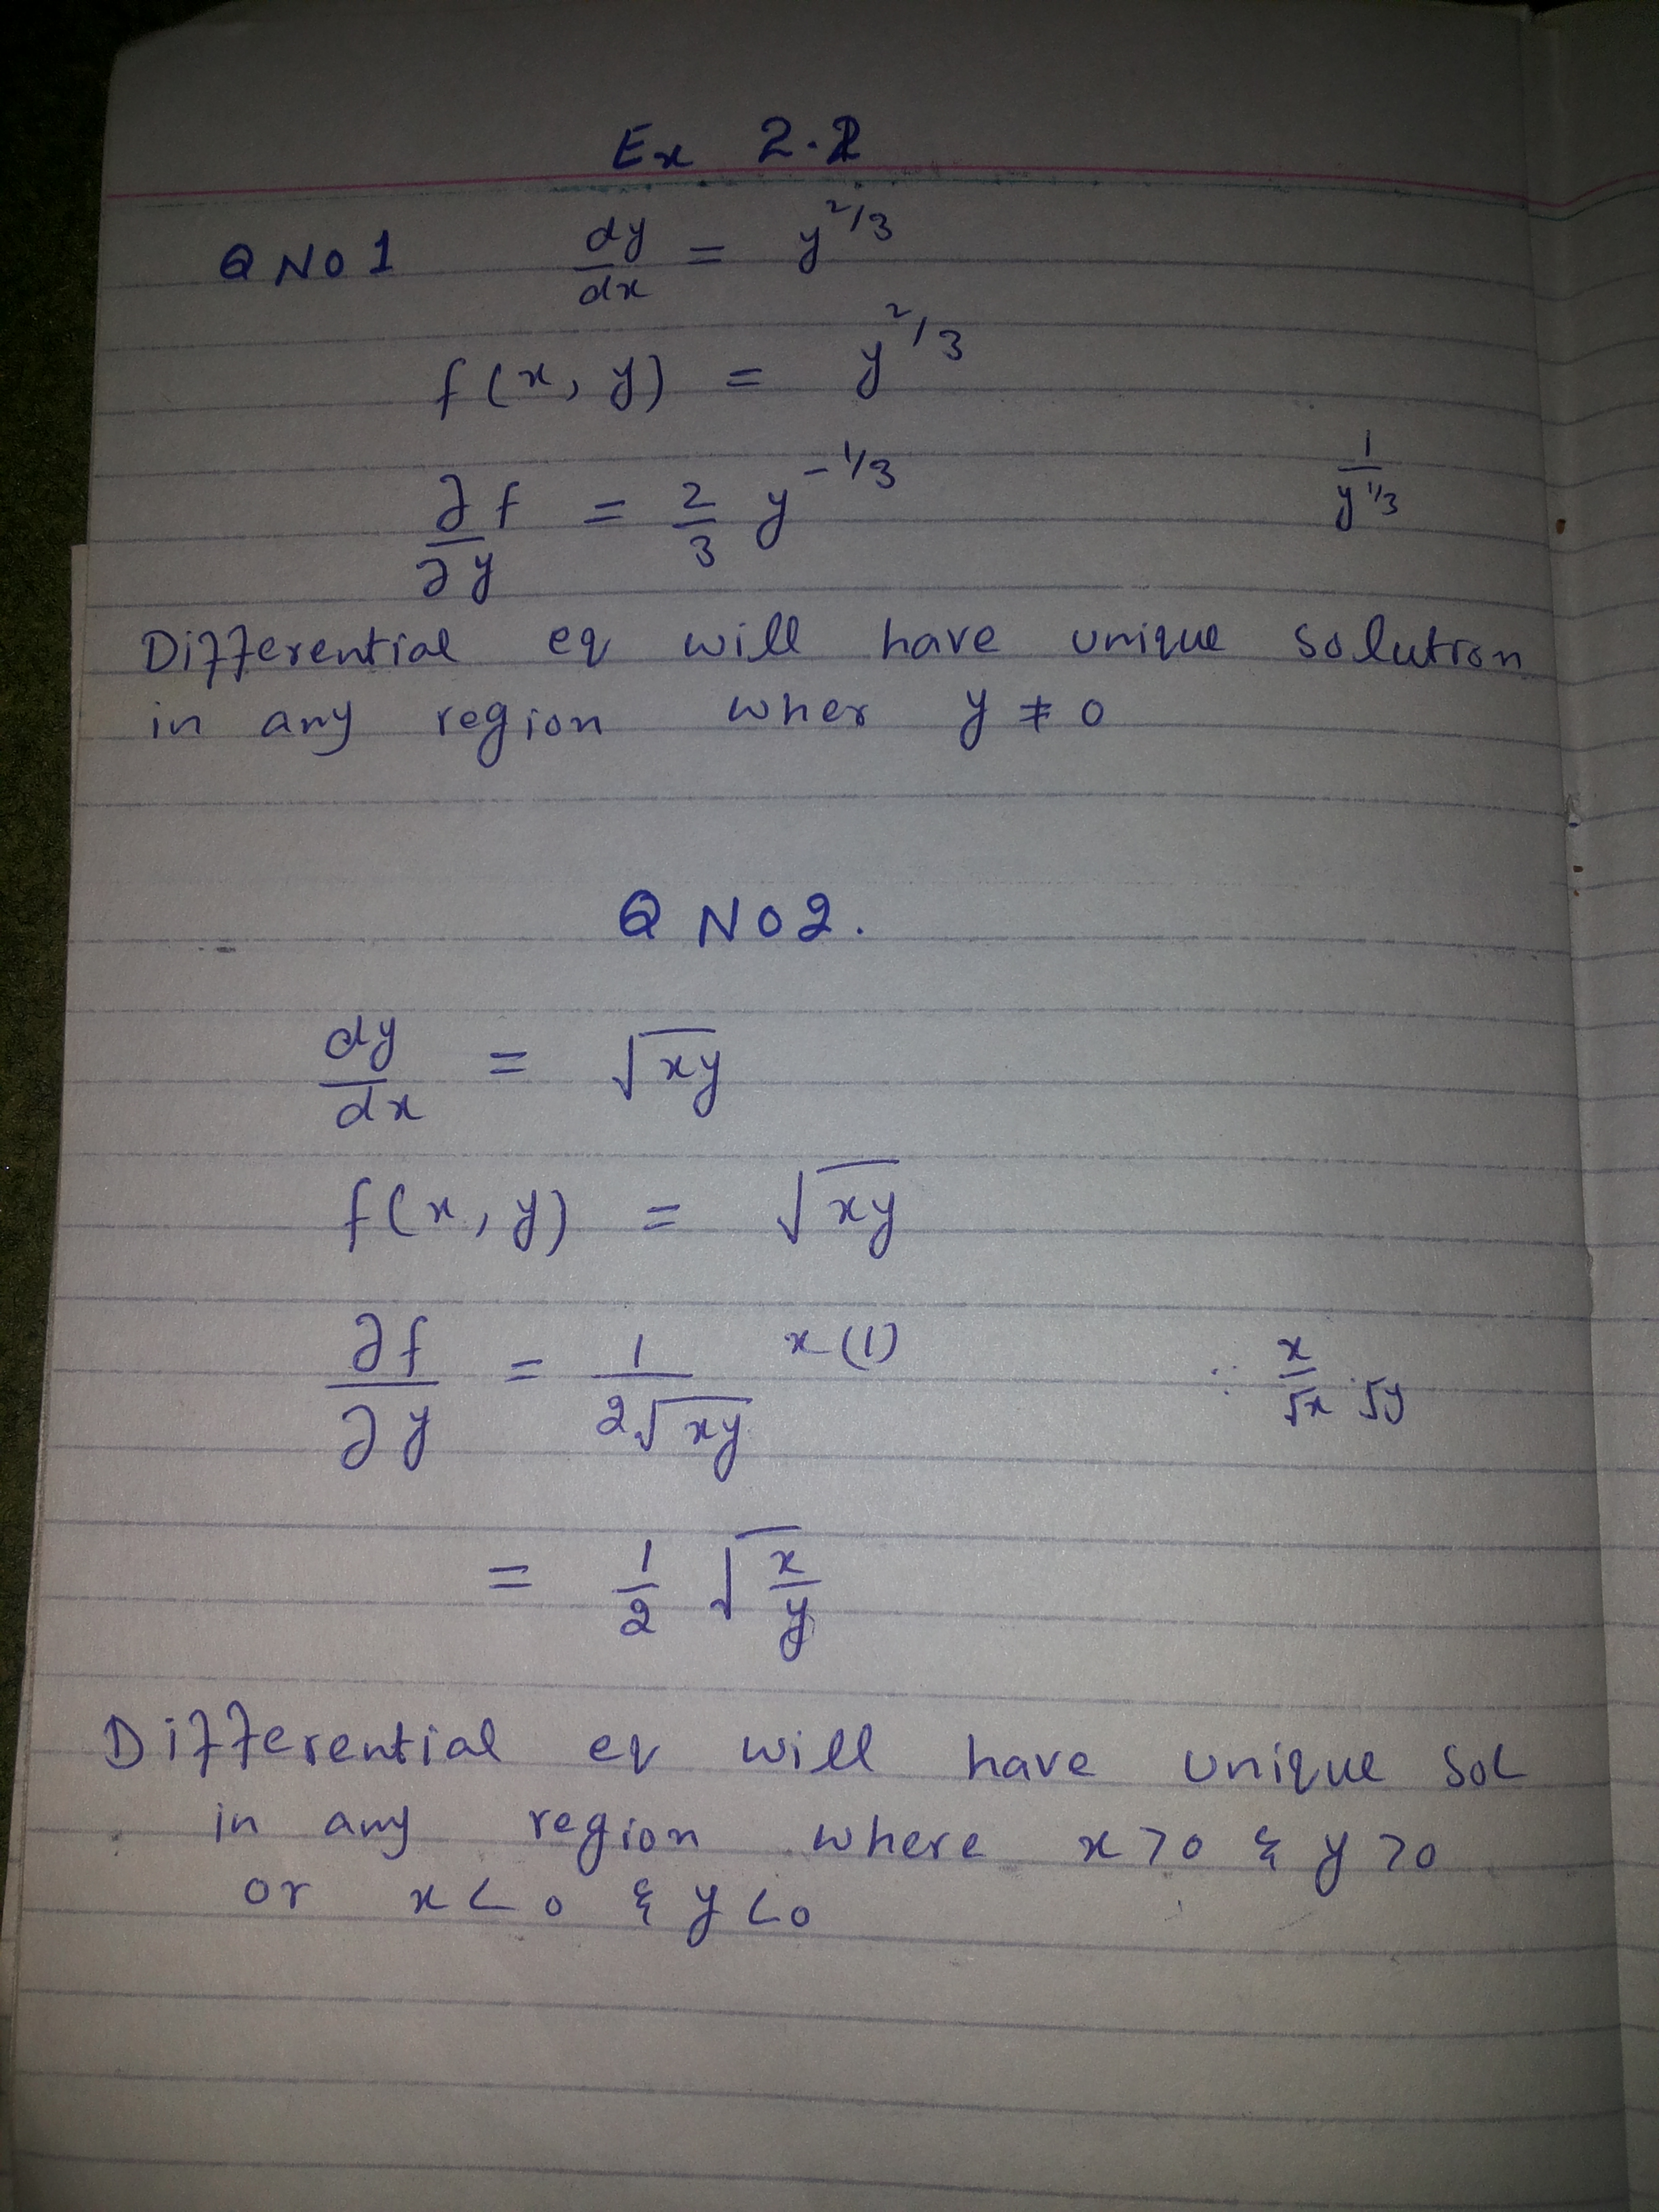 Ex 2.1
Q NO 1 dy/dx = y^2/3
f(x, y) = y^2/3
∂f/∂y = 2/3 y^-1/3 1/y^1/3
Differential eq will have unique solution
in any region wher y ≠ 0
Q NO 2.
dy/dx = √xy
f(x, y) = √xy
∂f/∂y = 1/2√xy x(1) ∵ x/√x·√y
= 1/2 √x/y
Differential eq will have unique sol
in any region where x>0 & y>0
or x<0 & y<0